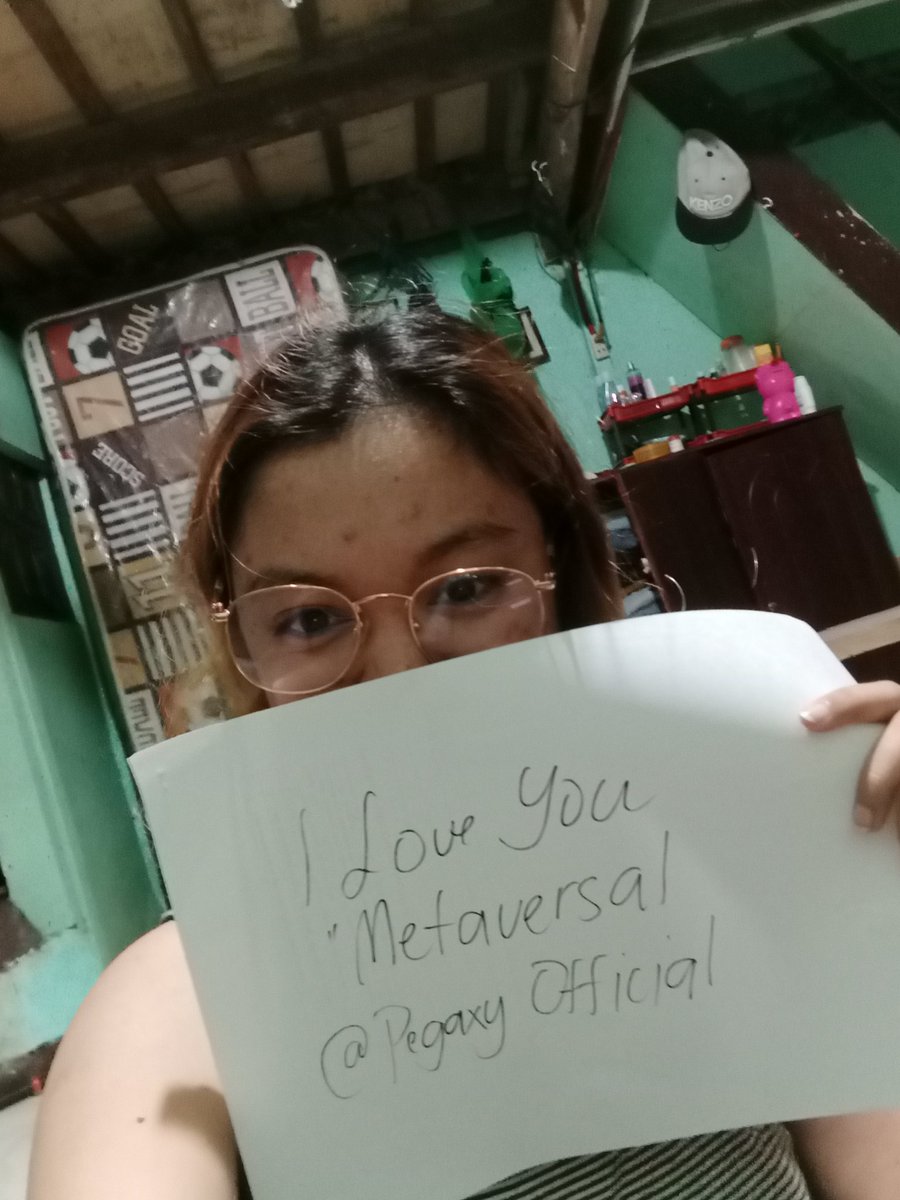 KENZO
GOAL
BALL
7
SCORE
11
I Love You
"Metaversal
@Pegaxy Official